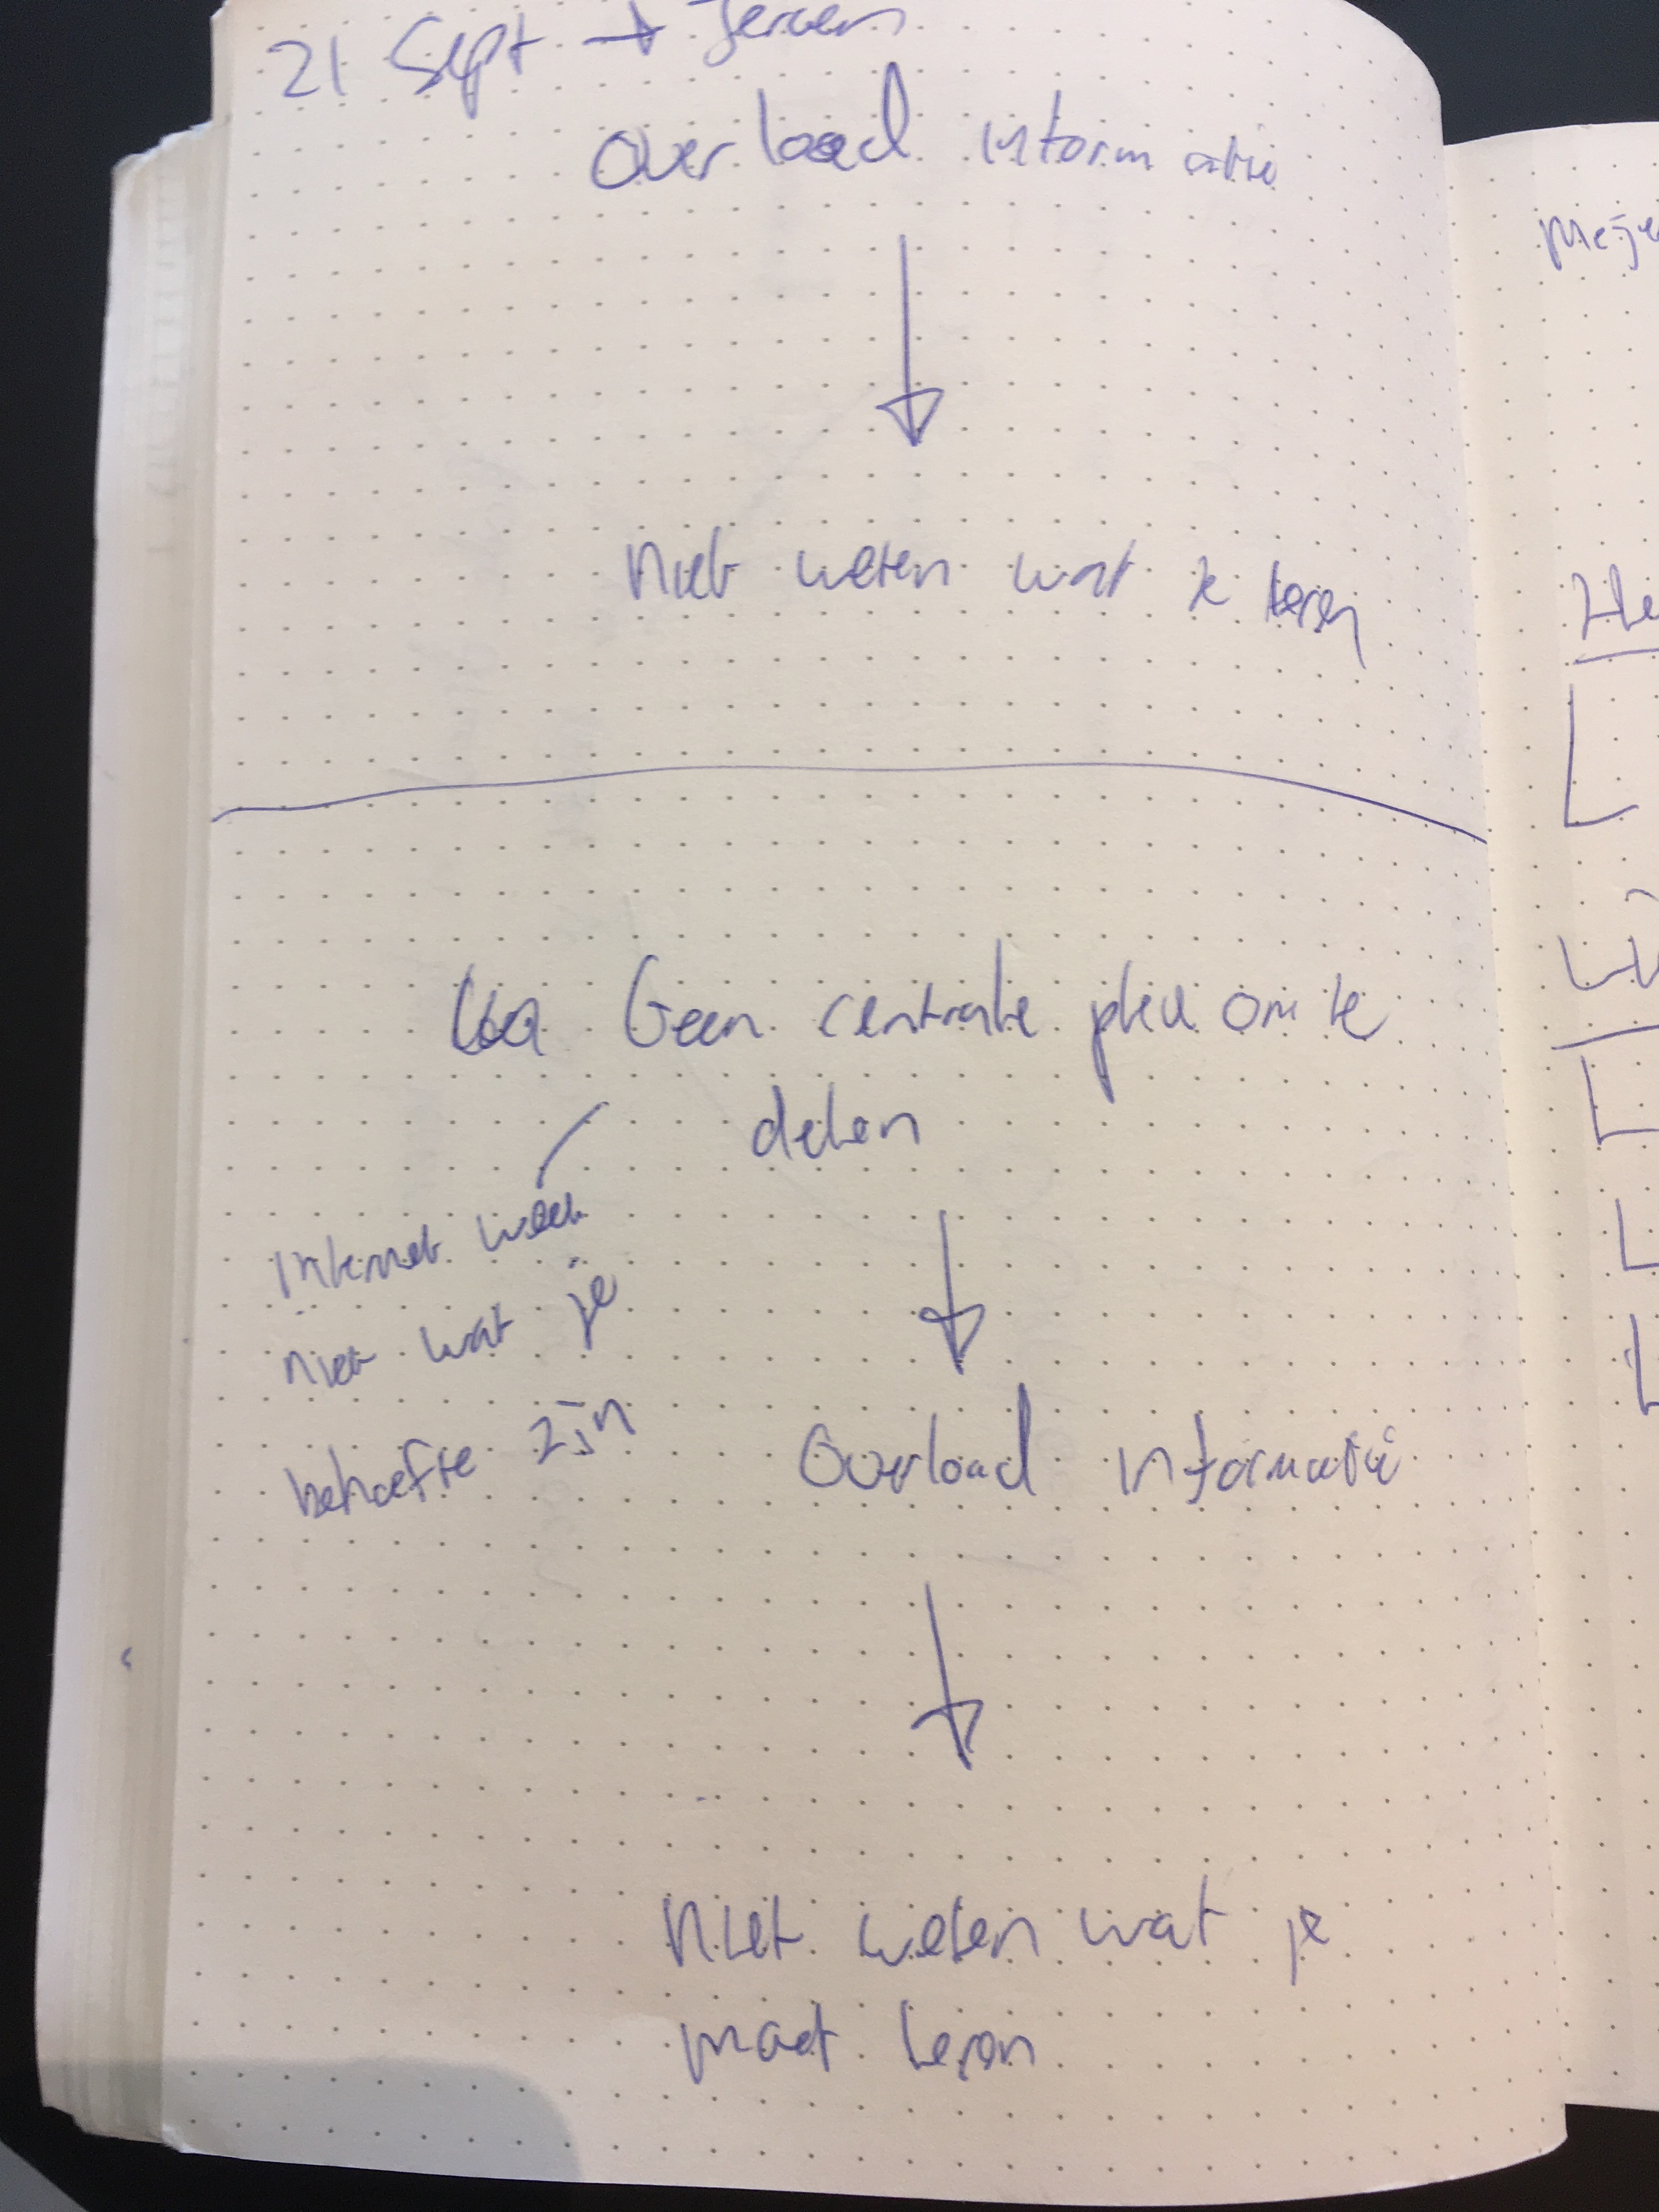 21 Sept → Jeroen
Overload informatie
Niet weten wat te lezen
Geen centrale plek om te
delen
Internet weet
niet wat je
behoefte zijn
Overload informatie
Niet weten wat je
moet lezen
Meije
He